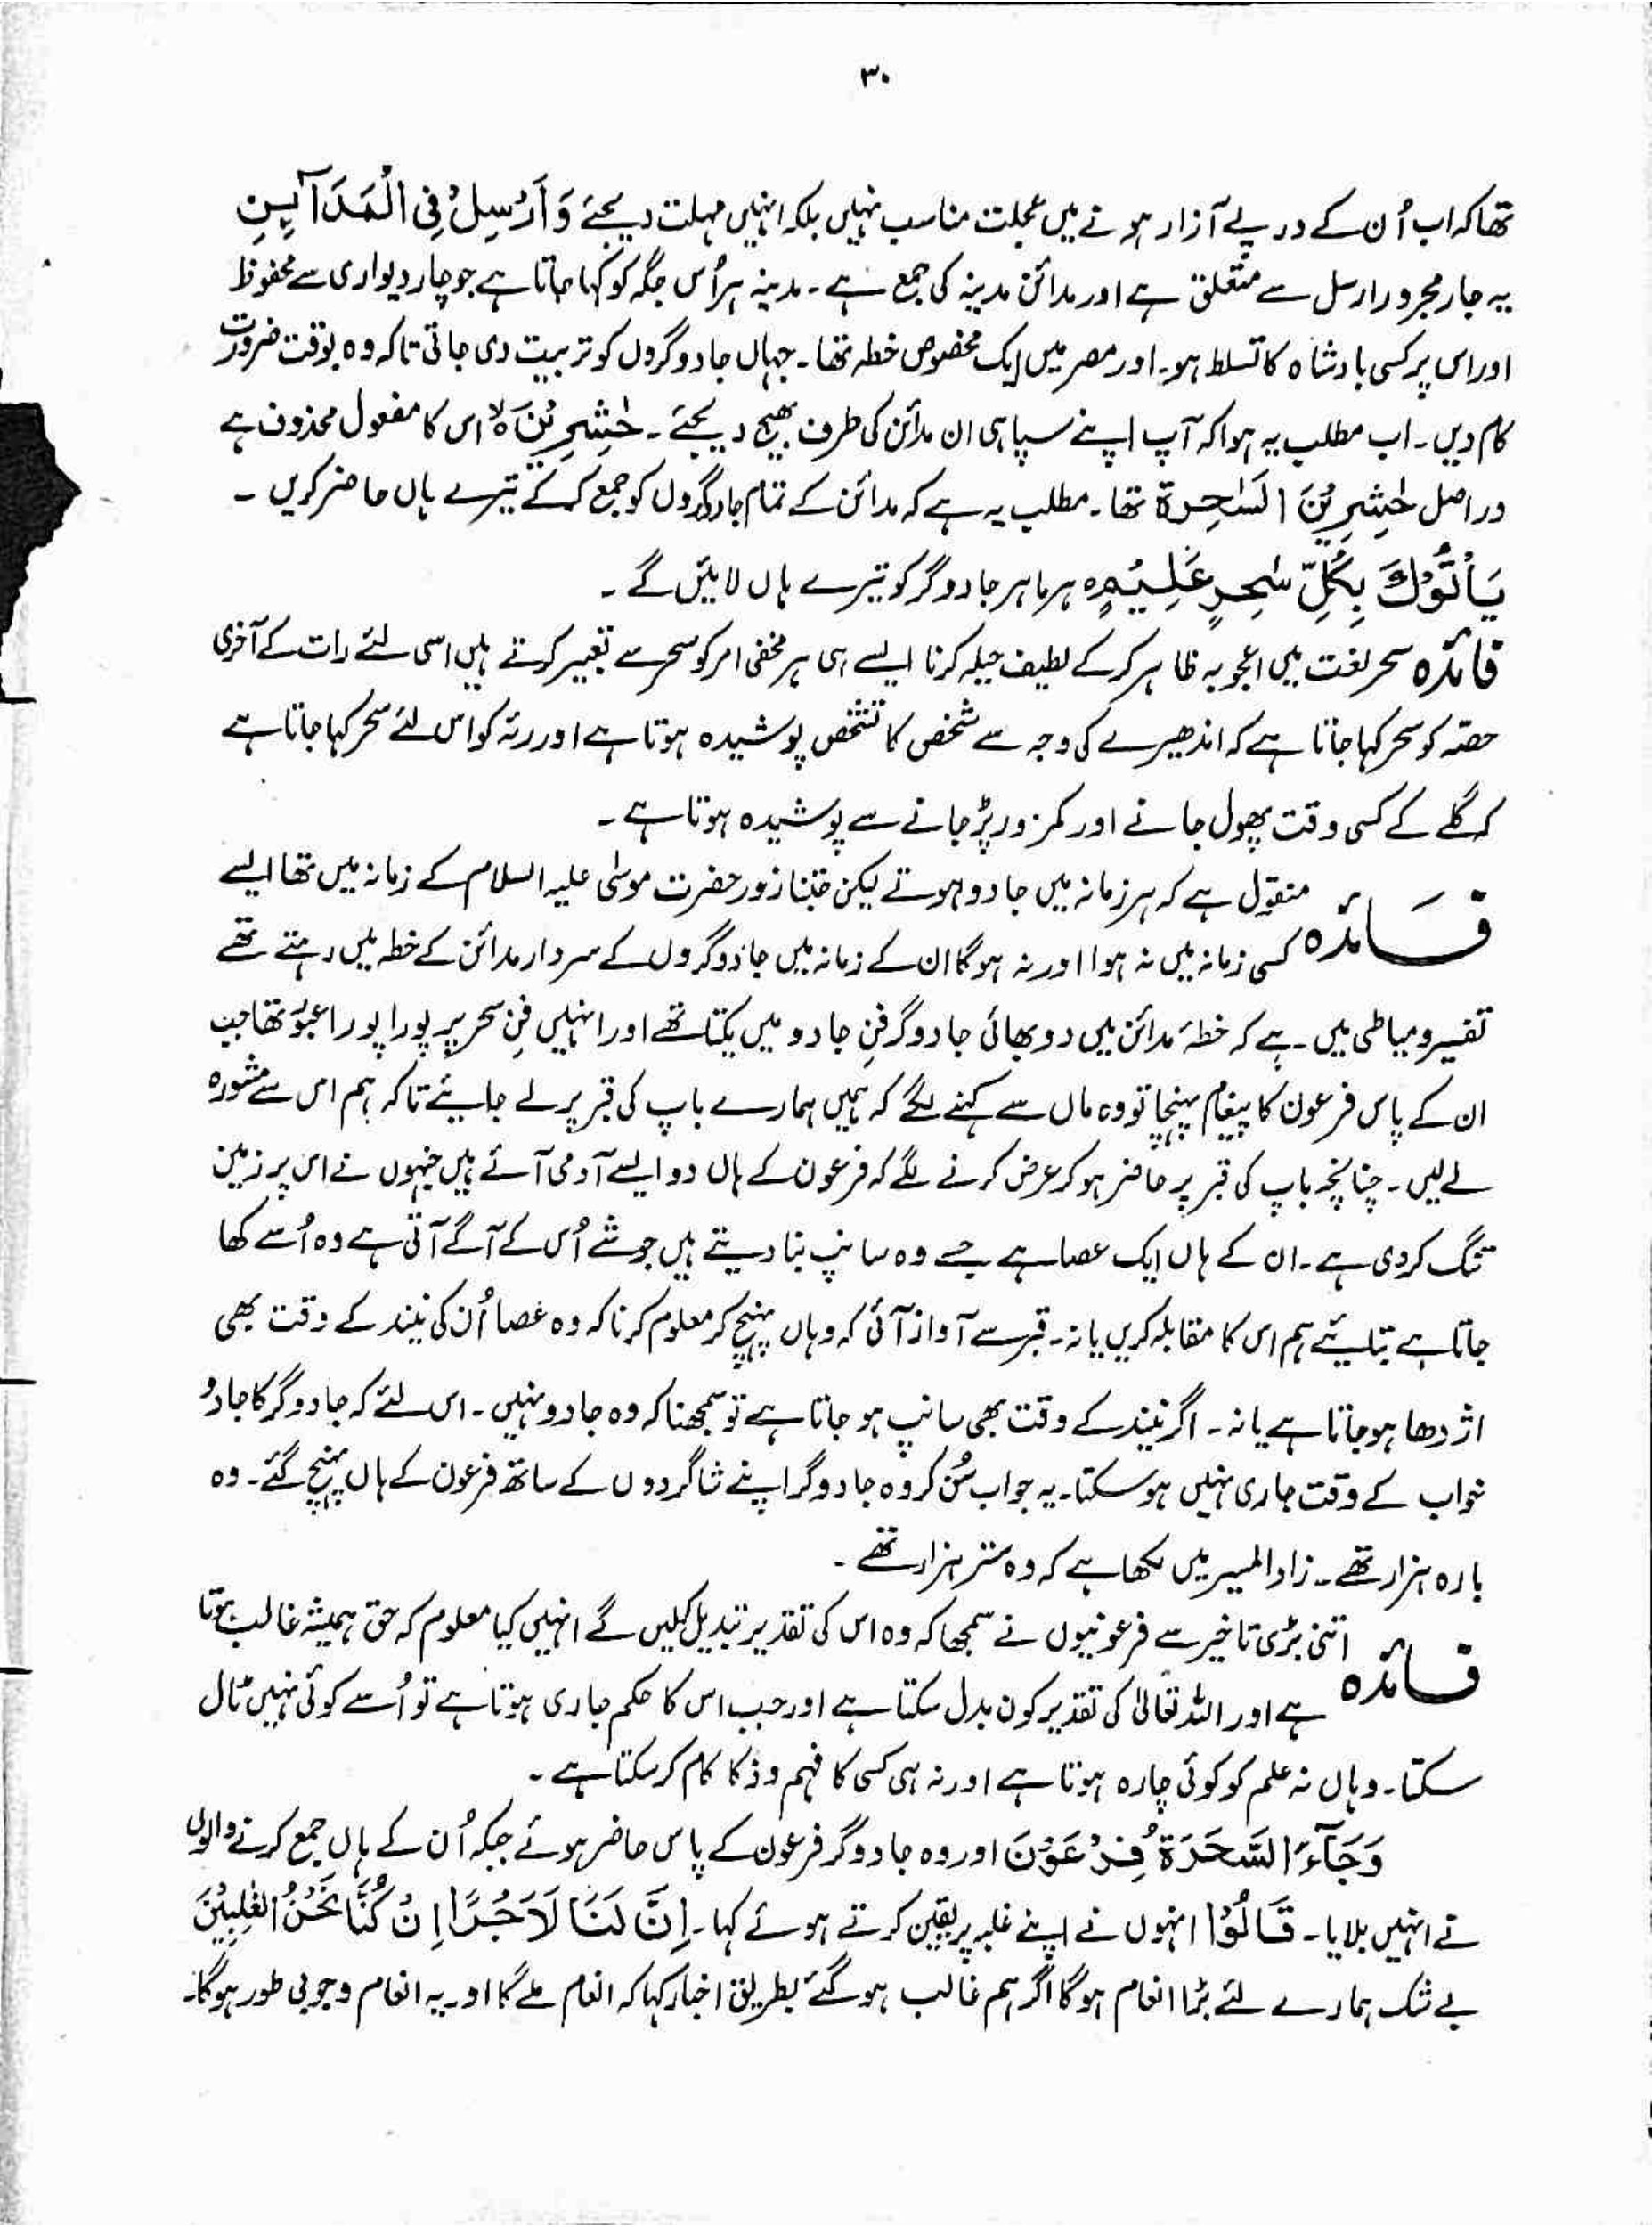 ۳۰
تھا کہ اب اُن کے درپے آزار ہونے میں عجلت مناسب نہیں بلکہ انہیں مہلت دیجئے وَاَرْسِلْ فِی الْمَدَآئِنِ
یہ جار مجرور ارسل سے متعلق ہے اور مدائن مدینہ کی جمع ہے۔ مدینہ ہر اُس جگہ کو کہا جاتا ہے جو چار دیواری سے محفوظ
اور اس پر کسی بادشاہ کا تسلط ہو۔ اور مصر میں ایک مخصوص خطہ تھا۔ جہاں جادوگروں کو تربیت دی جاتی تاکہ وہ بوقت ضرورت
کام دیں۔ اب مطلب یہ ہوا کہ آپ اپنے سپاہی ان مدائن کی طرف بھیج دیجئے۔ حٰشِرِیْنَ ہ لا اس کا مفعول محذوف ہے
در اصل حٰشِرِیْنَ السَّاحِرۃ تھا۔ مطلب یہ ہے کہ مدائن کے تمام جادوگروں کو جمع کر کے تیرے ہاں حاضر کریں۔
یَاْتُوْكَ بِكُلِّ سٰحِرٍ عَلِیْمٍ ہ ہر ماہر جادوگر کو تیرے ہاں لائیں گے۔
فائدہ سحر لغت میں اعجوبہ ظاہر کر کے لطیف حیلہ کرنا ایسے ہی ہر مخفی امر کو سحر سے تعبیر کرتے ہیں اسی لئے رات کے آخری
حصّہ کو سحر کہا جاتا ہے کہ اندھیرے کی وجہ سے شخص کا تشخص پوشیدہ ہوتا ہے اور رئہ کو اس لئے سحر کہا جاتا ہے
کہ گلے کے کسی وقت پھول جانے اور کمزور پڑ جانے سے پوشیدہ ہوتا ہے۔
فَائدہ منقول ہے کہ ہر زمانہ میں جادو ہوتے لیکن جتنا زور حضرت موسٰی علیہ السلام کے زمانہ میں تھا ایسے
کسی زمانہ میں نہ ہوا اور نہ ہوگا ان کے زمانہ میں جادوگروں کے سردار مدائن کے خطہ میں رہتے تھے
تفسیر ومیاطی میں۔ ہے کہ خطۂ مدائن میں دو بھائی جادوگر فنِ جادو میں یکتا تھے اور انہیں فنِ سحر پر پورا پورا عبور تھا جب
ان کے پاس فرعون کا پیغام پہنچا تو وہ ماں سے کہنے لگے کہ ہمیں ہمارے باپ کی قبر پر لے جایئے تاکہ ہم اس سے مشورہ
لے لیں۔ چنانچہ باپ کی قبر پر حاضر ہو کر عرض کرنے لگے کہ فرعون کے ہاں دو ایسے آدمی آئے ہیں جنہوں نے اس پر زمین
تنگ کر دی ہے۔ ان کے ہاں ایک عصا ہے جسے وہ سانپ بنا دیتے ہیں جو شے اُس کے آگے آتی ہے وہ اُسے کھا
جاتا ہے بتایئے ہم اس کا مقابلہ کریں یا نہ۔ قبر سے آواز آئی کہ وہاں پہنچ کر معلوم کرنا کہ وہ عصا اُن کی نیند کے وقت بھی
اژدھا ہو جاتا ہے یا نہ۔ اگر نیند کے وقت بھی سانپ ہو جاتا ہے تو سمجھنا کہ وہ جادو نہیں۔ اس لئے کہ جادوگر کا جادو
خواب کے وقت جاری نہیں ہو سکتا۔ یہ جواب سُن کر وہ جادوگر اپنے شاگردوں کے ساتھ فرعون کے ہاں پہنچ گئے۔ وہ
بارہ ہزار تھے۔ زاد المسیر میں لکھا ہے کہ وہ ستر ہزار تھے۔
فائدہ اتنی بڑی تاخیر سے فرعونیوں نے سمجھا کہ وہ اس کی تقدیر تبدیل کر لیں گے انہیں کیا معلوم کہ حق ہمیشہ غالب ہوتا
ہے اور اللہ تعالٰی کی تقدیر کون بدل سکتا ہے اور جب اس کا حکم جاری ہوتا ہے تو اُسے کوئی نہیں ٹال
سکتا۔ وہاں نہ علم کو کوئی چارہ ہوتا ہے اور نہ ہی کسی کا فہم و ذکا کام کر سکتا ہے۔
وَجَآءَ السَّحَرَۃُ فِرْعَوْنَ اور وہ جادوگر فرعون کے پاس حاضر ہوئے جبکہ اُن کے ہاں جمع کرنے والوں
نے انہیں بلایا۔ قَالُوْٓا انہوں نے اپنے غلبہ پر یقین کرتے ہوئے کہا۔ اِنَّ لَنَا لَاَجْرًا اِنْ كُنَّا نَحْنُ الْغٰلِبِیْنَ
بے شک ہمارے لئے بڑا انعام ہوگا اگر ہم غالب ہو گئے بطریق اخبار کہا کہ انعام ملے گا اور یہ انعام وجوبی طور ہوگا۔